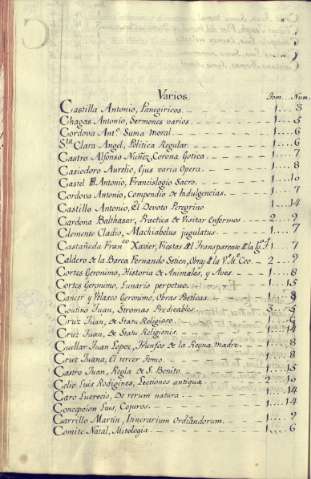 C
Varios. Tom. Num.
Castilla Antonio, Panegiricos. 1....8
Chagas Antonio, Sermones varios. 1....5
Cordova Ant.º Suma moral. 1....6
S.ta Clara Angel, Politica Regular. 1....6
Castro Alfonso Nuñez, Corona Gotica. 1....7
Casiodoro Aurelio, Ejus varia Opera. 1....8
Castel Antonio, Francislogio Sacro. 1....10
Cordova Antonio, Compendio de Indulgencias. 1....7
Castillo Antonio, El Devoto Peregrino 1....14
Cardona Balthasar, Practica de Visitar Enfermos. 2....9
Clemente Cladio, Machiabelus jugulatus 1....7
Castañeda Fran.co Xavier, Fiestas Transparente 1....7
Caldero de la Barca Fernando 2....9
Cortes Geronimo, Historia de Animales, y Aves. 1....8
Cortes Geronimo, Lunario perpetuo. 1....15
Cancer y Velasco Geronimo, Obras Poeticas. 1....8
Coutiño Juan, Stromas Predicables 5....5
Cruz Juan, de Statu Religioso. 1....6
Cruz Juan, de Statu Religionis. 1....14
Cuellar Juan Lopez, Triunfos de la Reyna madre. 1....8
Cruz Juana, El tercer tomo. 1....8
Castro Juan, Regla de S. Benito. 1....15
Celio Luis Rodigines, Lectiones antiqua 2....16
Caro Lucrecio, De rerum natura 1....14
Concepcion Luis, 1....14
Carrillo Martin, Itinerarium Ordinandorum. 1....9
Comite Natal, Mitologia 1....6